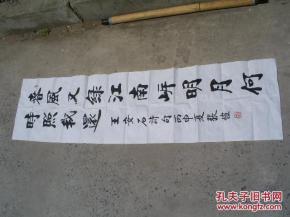 春風又綠江南岸明月何
時照我還
王安石詩句丙申夏張
孔夫子旧书网